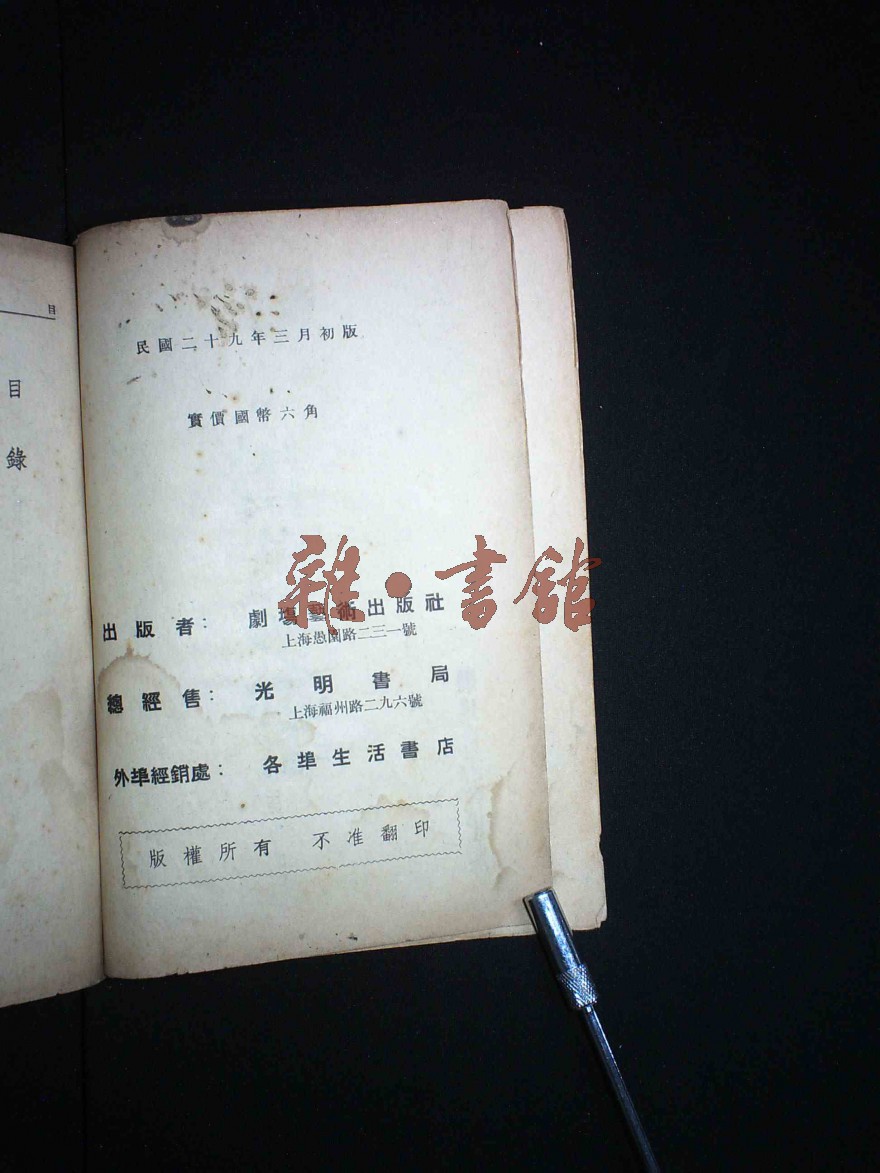 目
目
錄
民國二十九年三月初版
實價國幣六角
雜·書館
出版者：劇場藝術出版社
上海愚園路二三一號
總經售：光明書局
上海福州路二九六號
外埠經銷處：各埠生活書店
版權所有 不准翻印